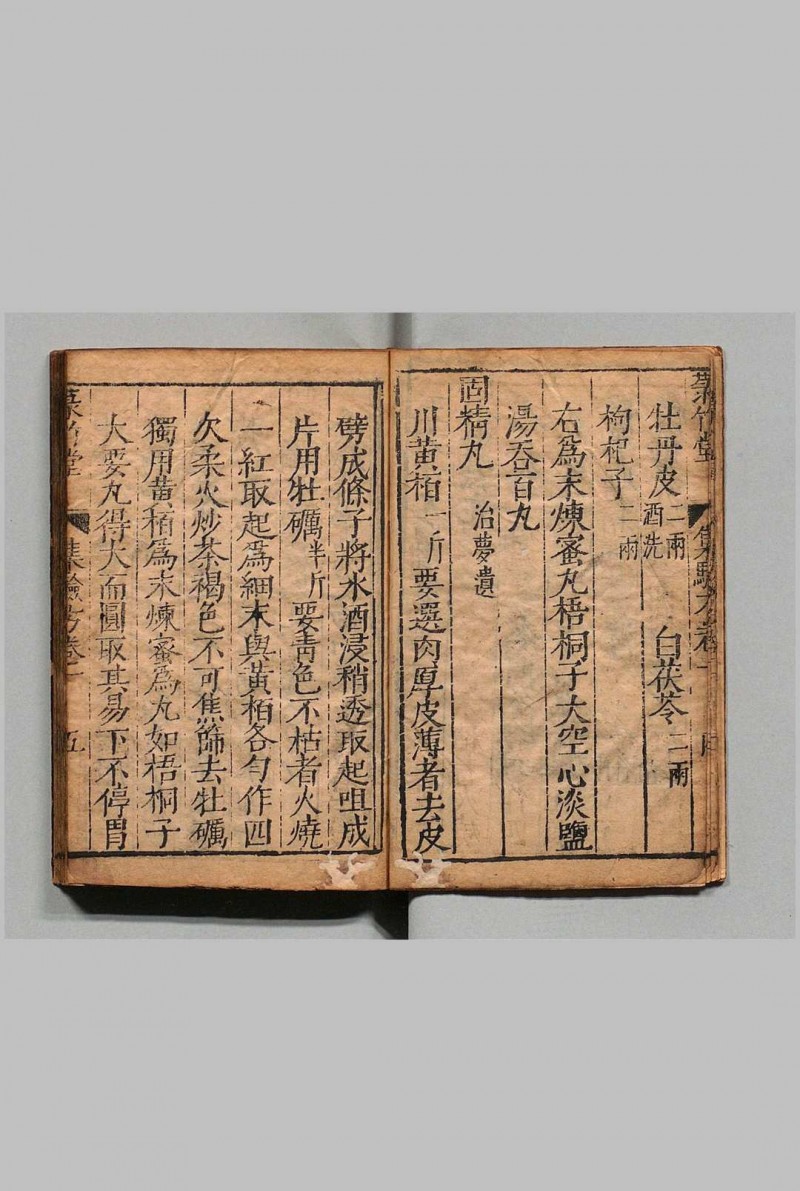 牡丹皮二兩酒洗 白茯苓二兩
枸杞子二兩
右為末煉蜜丸梧桐子大空心淡鹽
湯吞百丸
固精丸 治夢遺
川黃栢一斤要選肉厚皮薄者去皮
劈成條子將水酒浸稍透取起咀成
片用牡礪半斤要青色不枯者火燒
一紅取起爲細末與黃栢各勻作四
次柔火炒茶褐色不可焦篩去牡礪
獨用黃栢爲末煉蜜爲丸如梧桐子
大要丸得大而圓取其易下不停胃